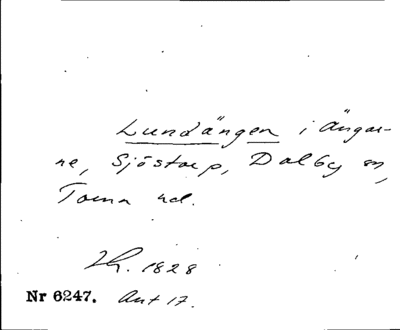 Lundängen i ängar-
ne, Sjöstorp, Dalby sn,
Torna hd.
Lh. 1828
Nr 6247. Akt 17.